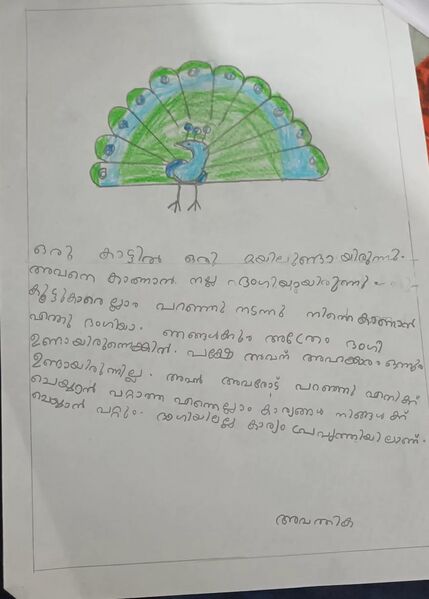 ഒരു കാട്ടിൽ ഒരു മയിലുണ്ടായിരുന്നു.
അവനെ കാണാൻ നല്ല ഭംഗിയായിരുന്നു
കൂട്ടുകാരെല്ലാം പറഞ്ഞു നടന്നു നിന്നെ കാണാൻ
എന്തു ഭംഗിയാ. ഞങ്ങൾക്കും അത്രേം ഭംഗി
ഉണ്ടായിരുന്നെങ്കിൽ. പക്ഷേ അവന് അഹങ്കാരം ഒന്നും
ഉണ്ടായിരുന്നില്ല. അവൻ അവരോട് പറഞ്ഞു എനിക്ക്
ചെയ്യാൻ പറ്റാത്ത എന്തെല്ലാം കാര്യങ്ങൾ നിങ്ങൾക്ക്
ചെയ്യാൻ പറ്റും. ഭംഗിയിലല്ല കാര്യം പ്രവൃത്തിയിലാണ്.
അവന്തിക